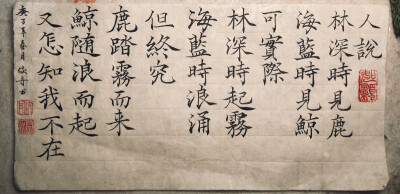 人説
林深時見鹿
海藍時見鯨
可實際
林深時起霧
海藍時浪涌
但終究
鹿踏霧而来
鯨随浪而起
又怎知我不在